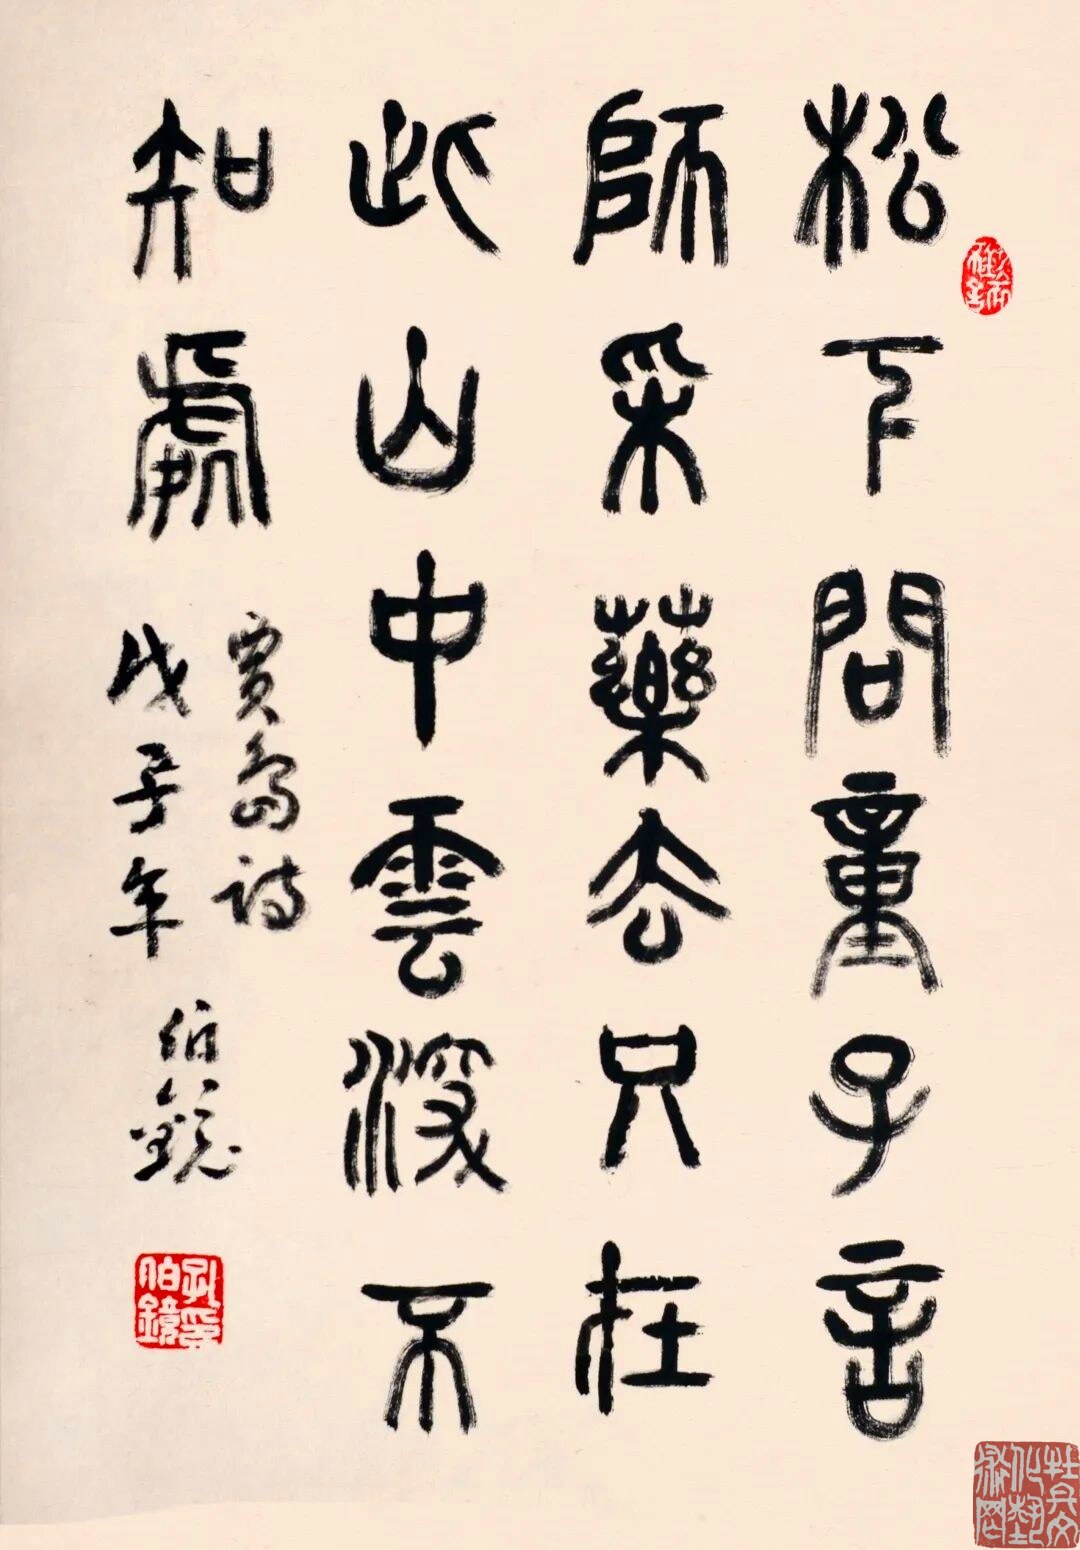 松下問童子言
師采藥去只在
此山中雲深不
知處
賈島詩
戊子年
伯鏡